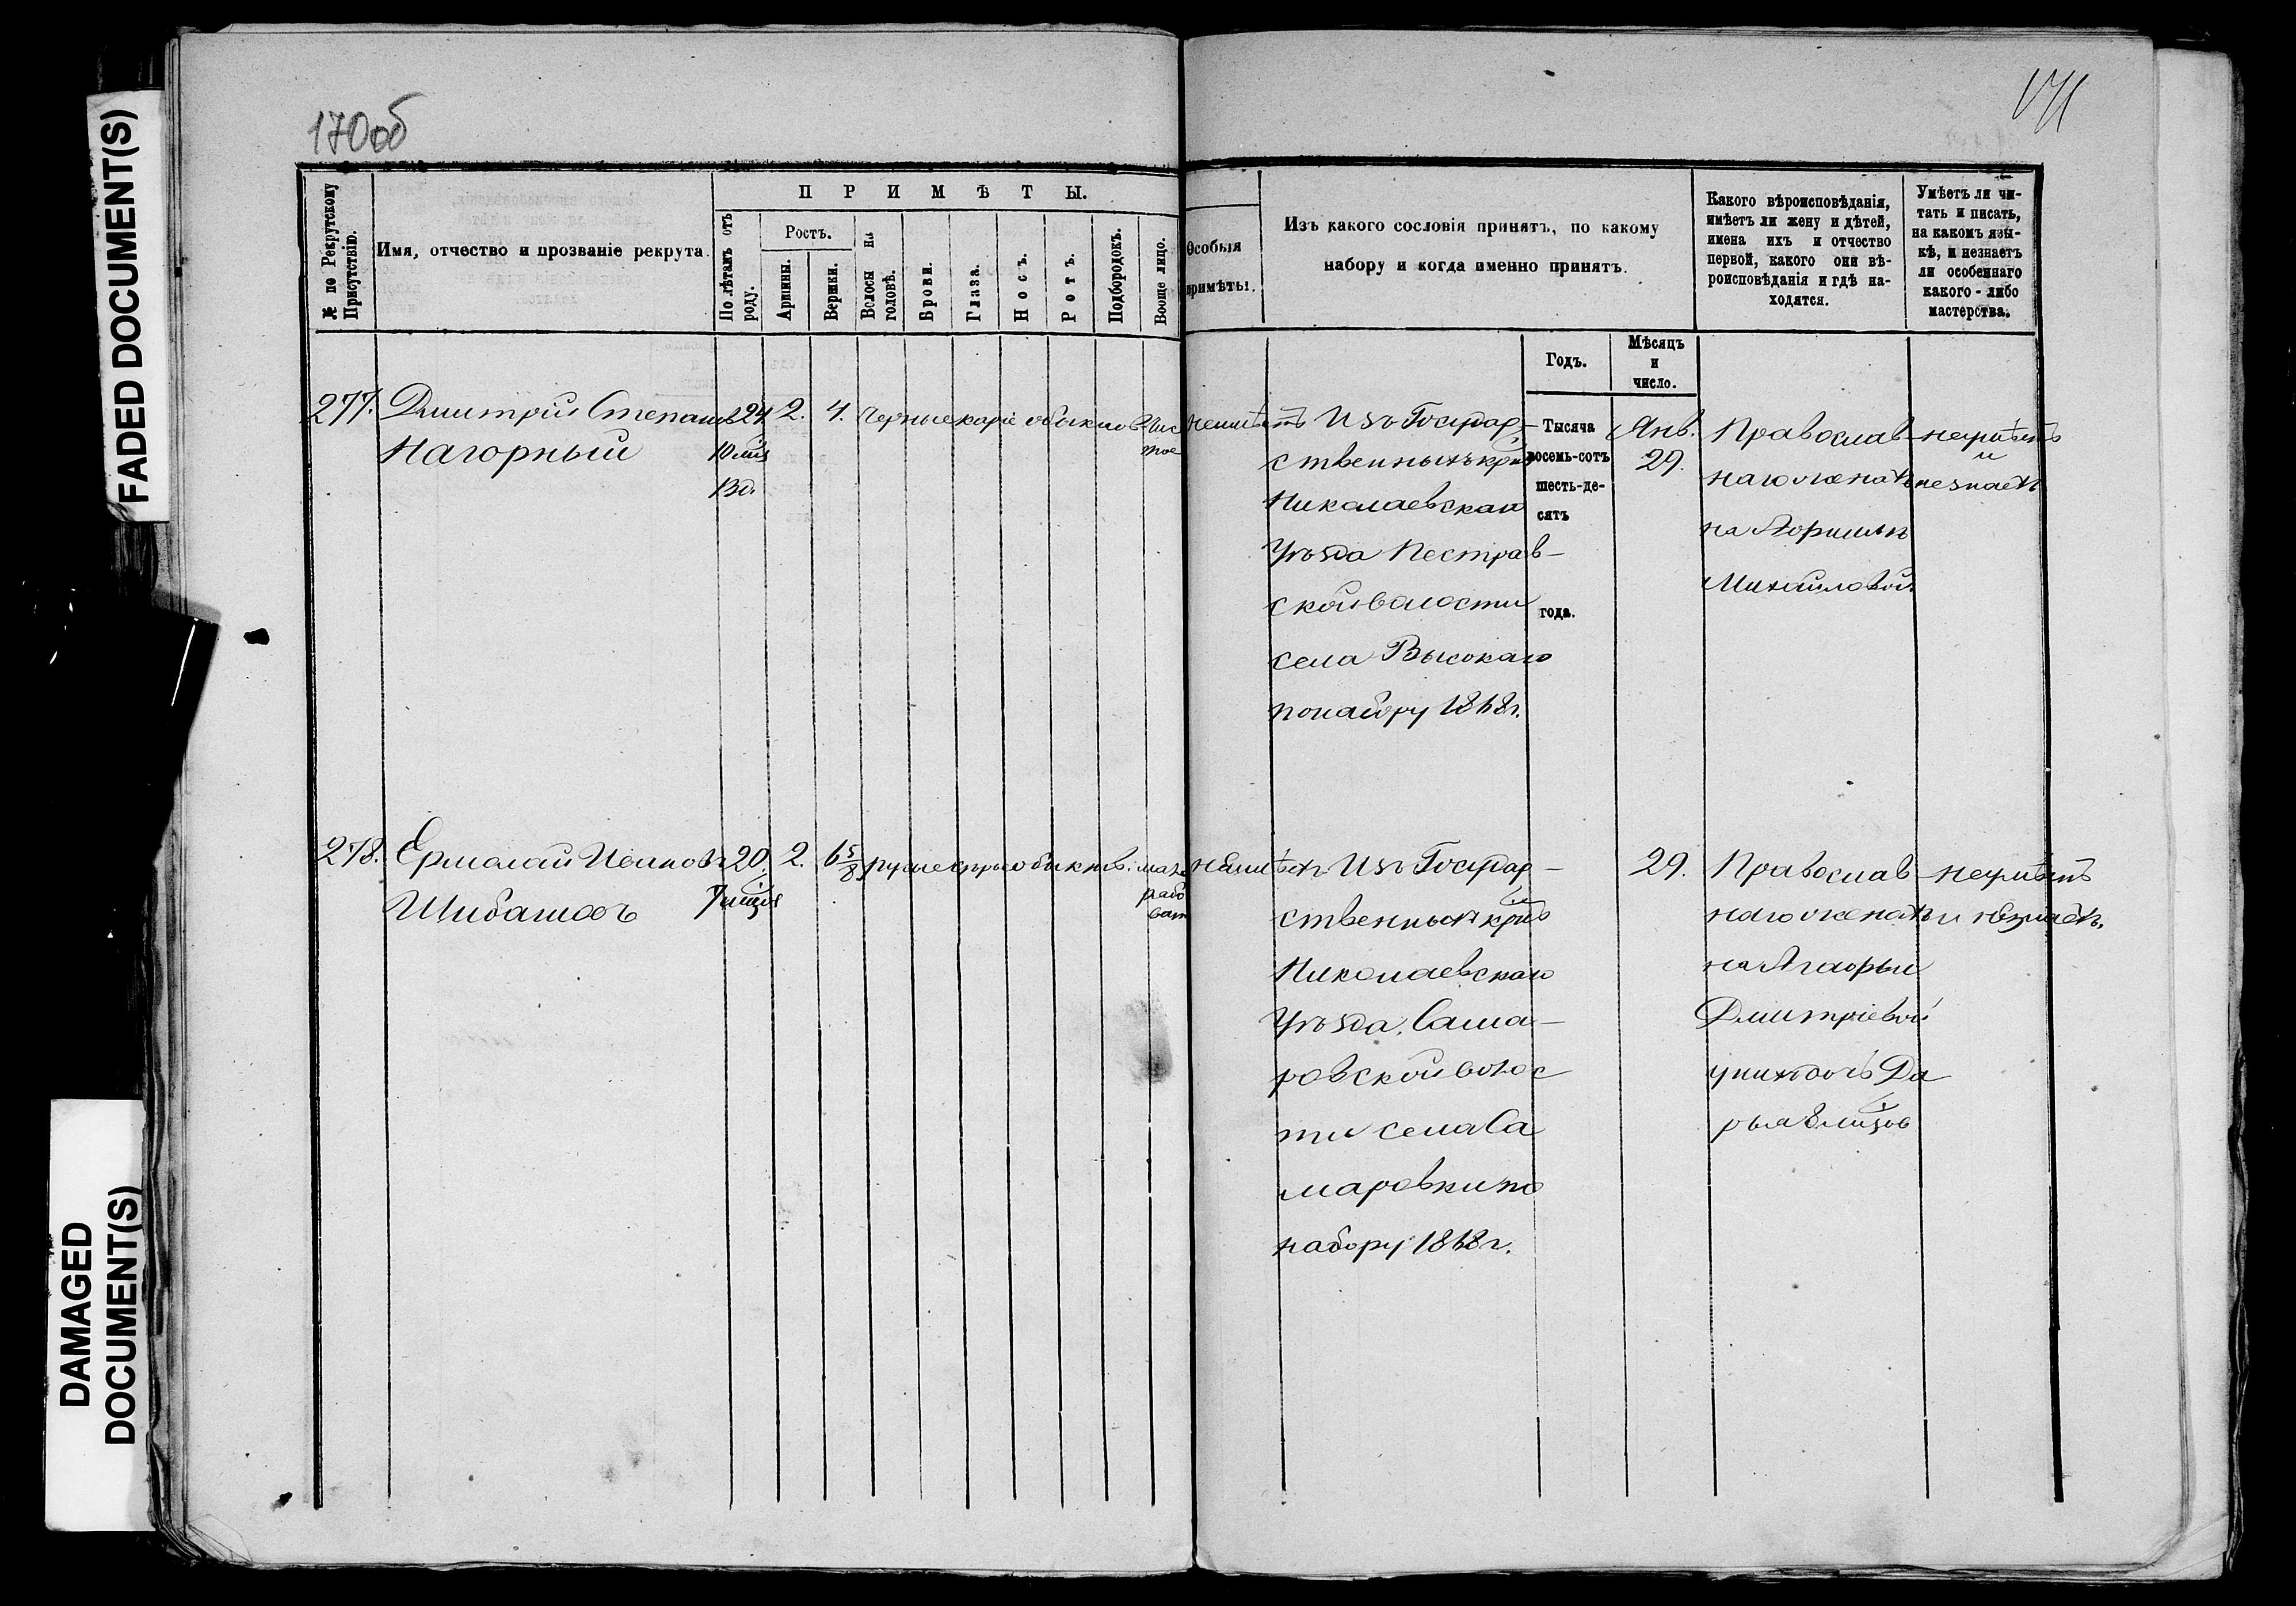 FADED DOCUMENT(S)
DAMAGED
DOCUMENT(S)
170об
171
№ по Рекрутскому
Присутствію.
Имя, отчество и прозваніе рекрута.
ПРИМѢТЫ.
По лѣтамъ отъ
роду.
Ростъ.
Аршины.
Вершки.
Волосы на
головѣ.
Брови.
Глаза.
Носъ.
Ротъ.
Подбородокъ.
Вооще лицо.
Особыя
примѣты.
Изъ какого сословія принятъ, по какому
набору и когда именно принятъ.
Какого вѣроисповѣданія,
имѣетъ ли жену и дѣтей,
имена ихъ и отчество
первой, какого они вѣ-
роисповѣданія и гдѣ на-
ходятся.
Умѣетъ ли чи-
тать и писать,
на какомъ язы-
кѣ, и незнаетъ
ли особеннаго
какого-либо
мастерства.
Годъ.
Мѣсяцъ
и
число.
277. Дмитрій Степановъ 24 2. 4. Черные каріе обыкнов. Чис
тое
Нагорный
10 м
13 д.
неимѣетъ
Изъ Государ-
ственныхъ кр
Николаевскаго
Уѣзда Пестрав-
ской волости
села Высокаго
по набору 1868 г.
Тысяча
восемь-сотъ
шесть-де-
сятъ
года.
Янв.
29.
Православ-
наго женатъ
на
Михайловой.
неумѣетъ
и
незнаетъ
278. Ермолай Ивановъ 20. 2. 6 5/8 русые сѣрые обыкнов. мало
рябо
ват
Шибашовъ
7 м
неимѣетъ
Изъ Государ-
ственныхъ кр
Николаевскаго
Уѣзда, Сама-
ровской волос
ти села Са
маровки по
набору 1868 г.
29.
Православ-
наго женатъ
на Агафьи
Дмитріевой
у нихъ дочь Да
рья 8
неумѣетъ
и незнаетъ.